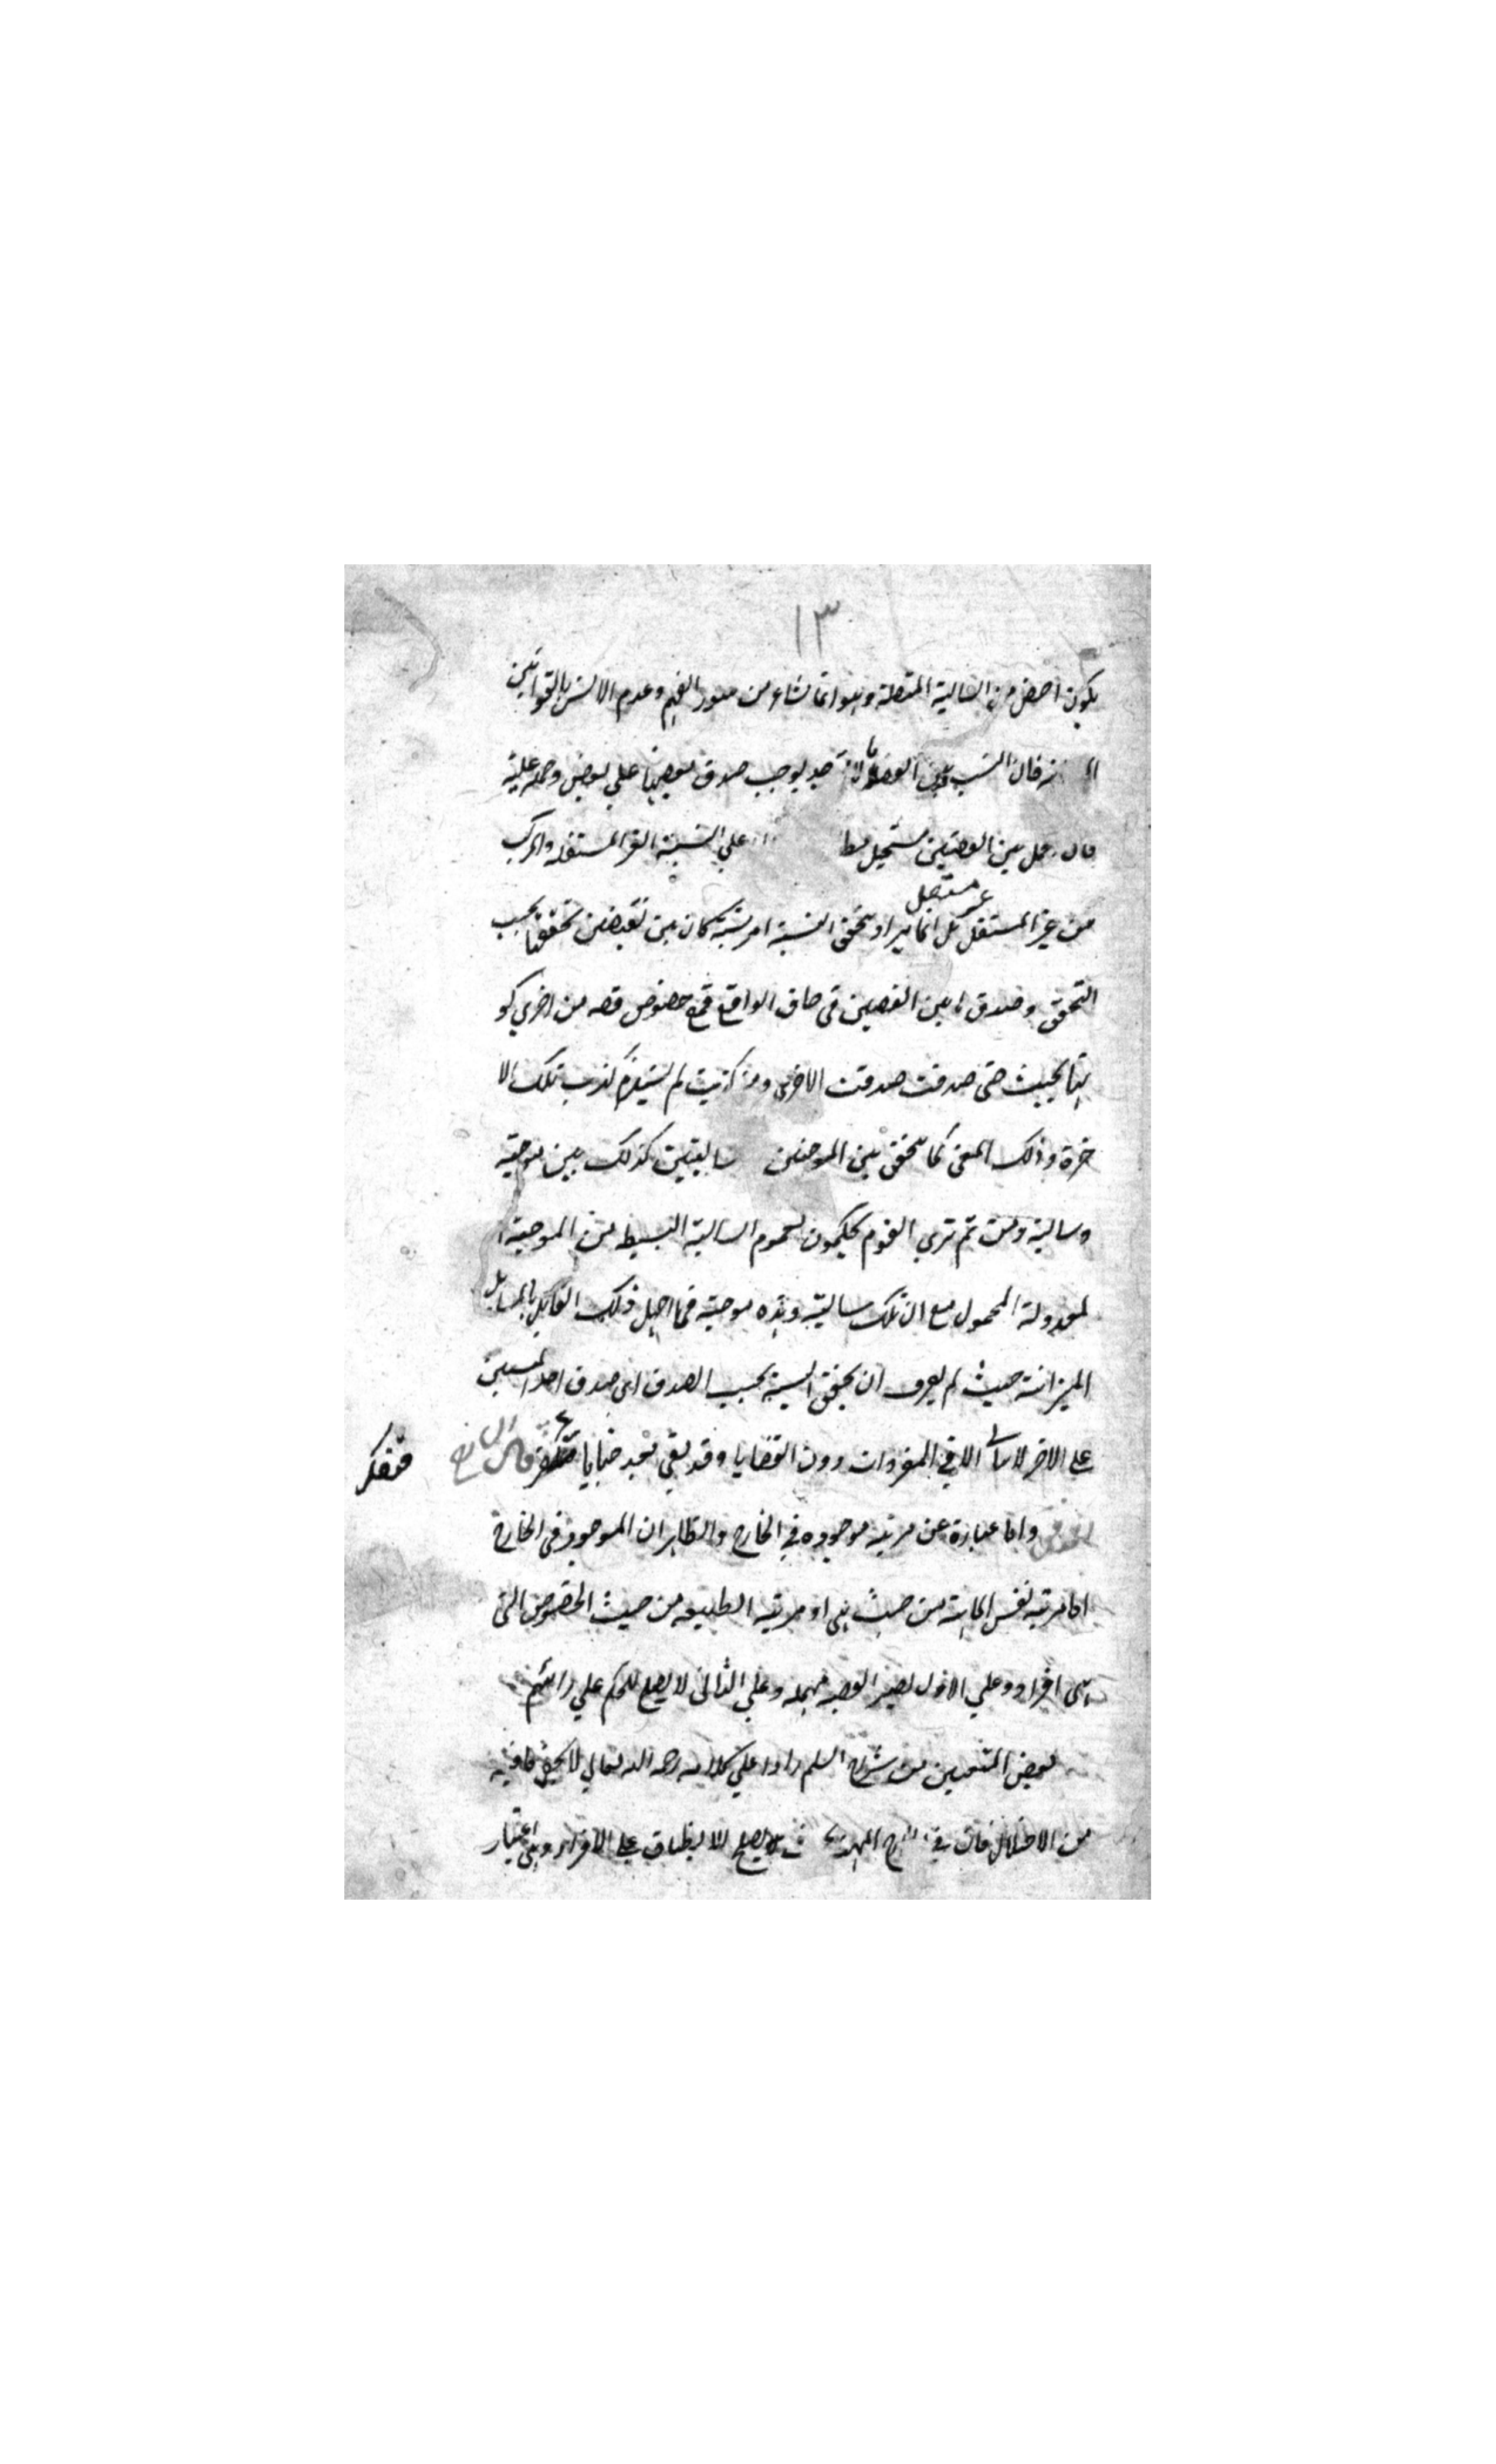 ١٣
يكون اخص من السالبة المتصلة وهو انما نشاء من سوء الفهم وعدم الانس بالقوانين
فان النسب بين القضايا لا يوجب صدق بعضها علي بعض وحمله عليه
فان حمل بين القضيتين مستحيل علي النسبة الغير المستقله والمركب
غير مستقل
من غير المستقل بل انما يراد بتحقق النسبة اى نسبة كان بين نقيضين تحققها بحسب
التحقق وصدق ما بين القضيتين في حاق الواقع فمع خصوص قضه من اخري كو
نها بحيث متى صدقت صدقت الاخرى ومن كذبت لم يستلزم كذب تلك الا
خرة وذلك المعنى كما يتحقق بين الموجبتين سالبتين كذلك بين موجبة
وسالبة ومن ثم تري القوم يحكمون بعموم السالبة البسيط من الموجبة ا
لمعدولة المحمول مع ان تلك سالبة وهذه موجبة فما اجهل ذلك القايل بالمسايل
الميزانية حيث لم يعرف ان تحقق النسبة بحسب الصدق اى صدق احد المنتسبين
على الاخر لا يتأتى الا في المفردات دون القضايا وقد بقي بعد خبايا
فتفكر
واما عبارة عن مرتبه موجوده في الخارج والظاهر ان الموجود في الخارج
اما مرتبة نفس الماهية من حيث هى او مرتبة الطبيعه من حيث الخصوص التى
هى افراد وعلي الاول يصير القضيه مهمله وعلي الثانى لا يصلح للحكم علي رائهم
بعض المتعمقين من شراح السلم زادوا علي كلامه رحمه الله تعالي لا يخفى ما فيه
من الاختلال فان في لا يصلح للانطباق على الافراد وهى اعتبار